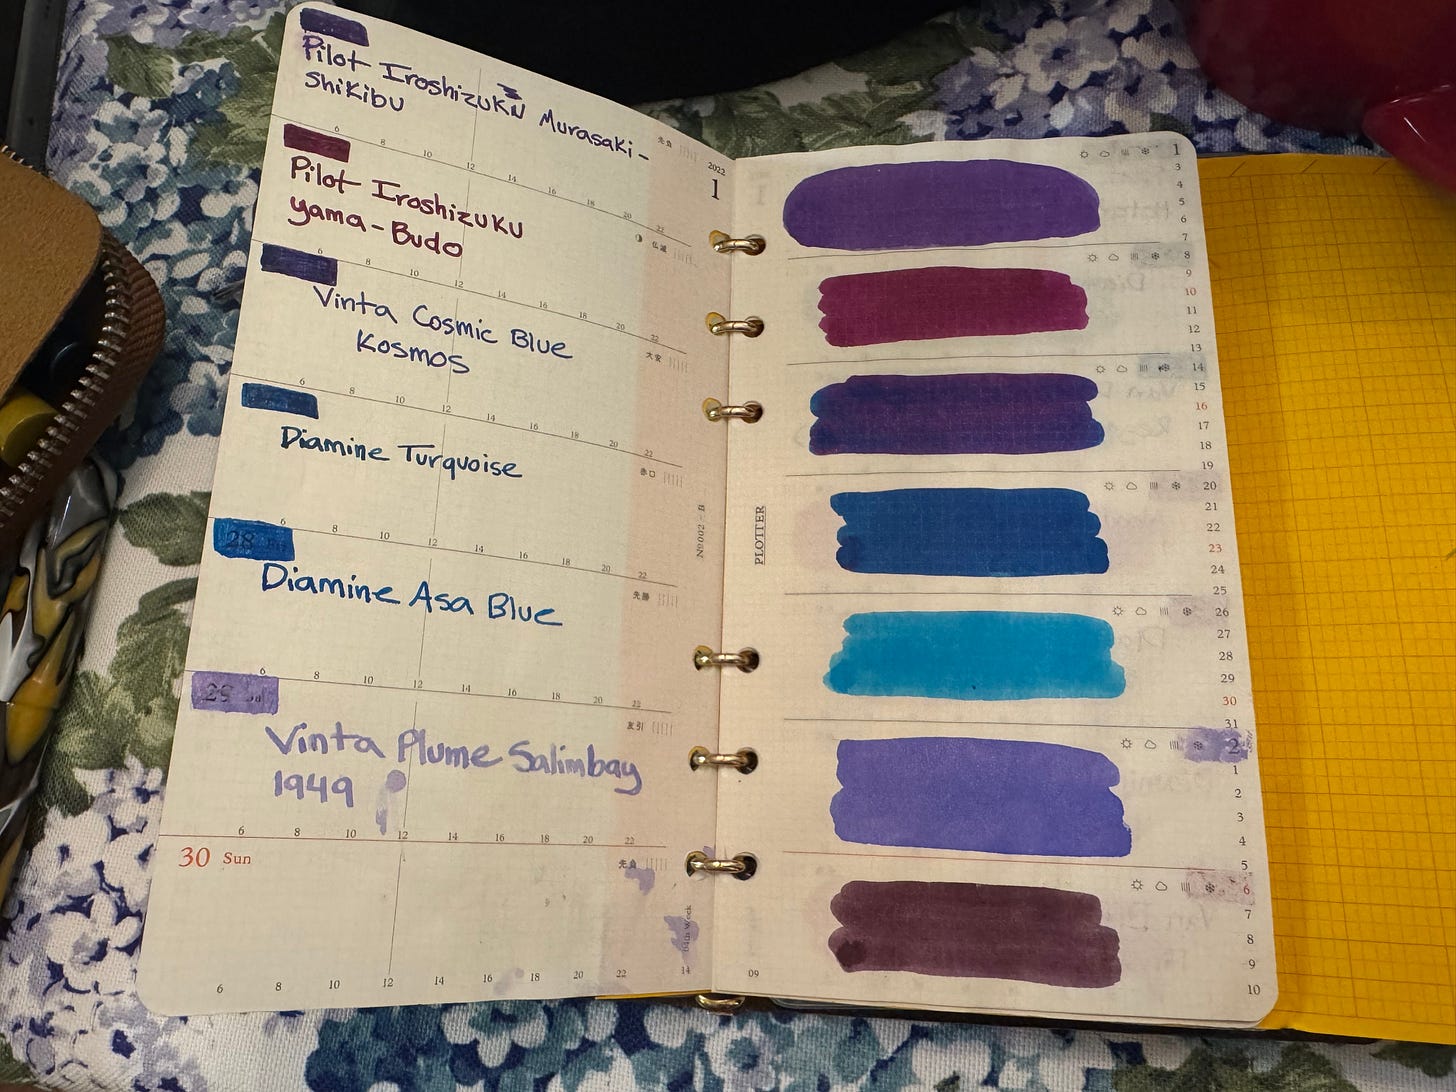 Pilot Iroshizuku Murasaki-
Shikibu
先負
6 8 10 12 14 16 18 20 22
2022
1
Pilot Iroshizuku
yama-Budo
仏滅
6 8 10 12 14 16 18 20 22
Vinta Cosmic Blue
Kosmos
大安
6 8 10 12 14 16 18 20 22
Diamine Turquoise
赤口
6 8 10 12 14 16 18 20 22
28
Diamine Asa Blue
先勝
6 8 10 12 14 16 18 20 22
29
Vinta Plume Salimbay
1949
友引
6 8 10 12 14 16 18 20 22
30 Sun
先負
6 8 10 12 14 16 18 20 22
14
Nº002 - B
PLOTTER
09
1
3
4
5
6
7
8
9
10
11
12
13
14
15
16
17
18
19
20
21
22
23
24
25
26
27
28
29
30
31
2
1
2
3
4
5
6
7
8
9
10